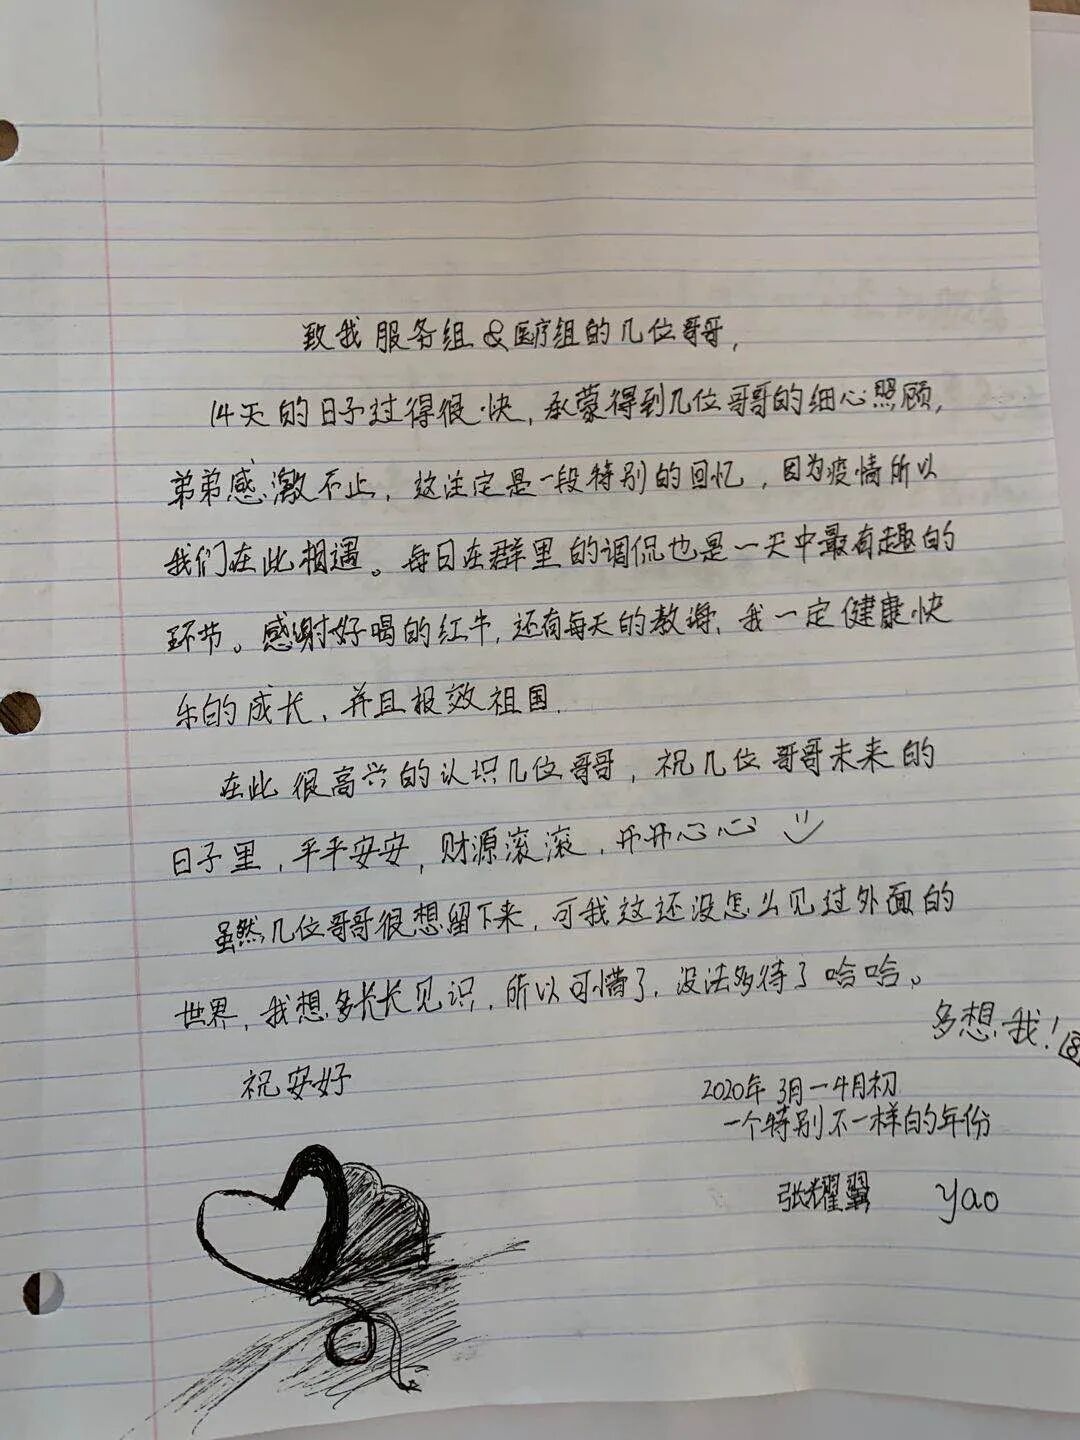 致我服务组&医疗组的几位哥哥,
14天的日子过得很快,承蒙得到几位哥哥的细心照顾,
弟弟感激不止,这注定是一段特别的回忆,因为疫情所以
我们在此相遇。每日在群里的调侃也是一天中最有趣的
环节。感谢好喝的红牛,还有每天的教诲,我一定健康快
乐的成长,并且报效祖国.
在此很高兴的认识几位哥哥,祝几位哥哥未来的
日子里,平平安安,财源滚滚,开开心心
虽然几位哥哥很想留下来,可我这还没怎么见过外面的
世界,我想多长长见识,所以可惜了,没法多待了哈哈。
多想我!
祝安好
2020年 3月-4月初
一个特别不一样的年份
张耀翼 yao